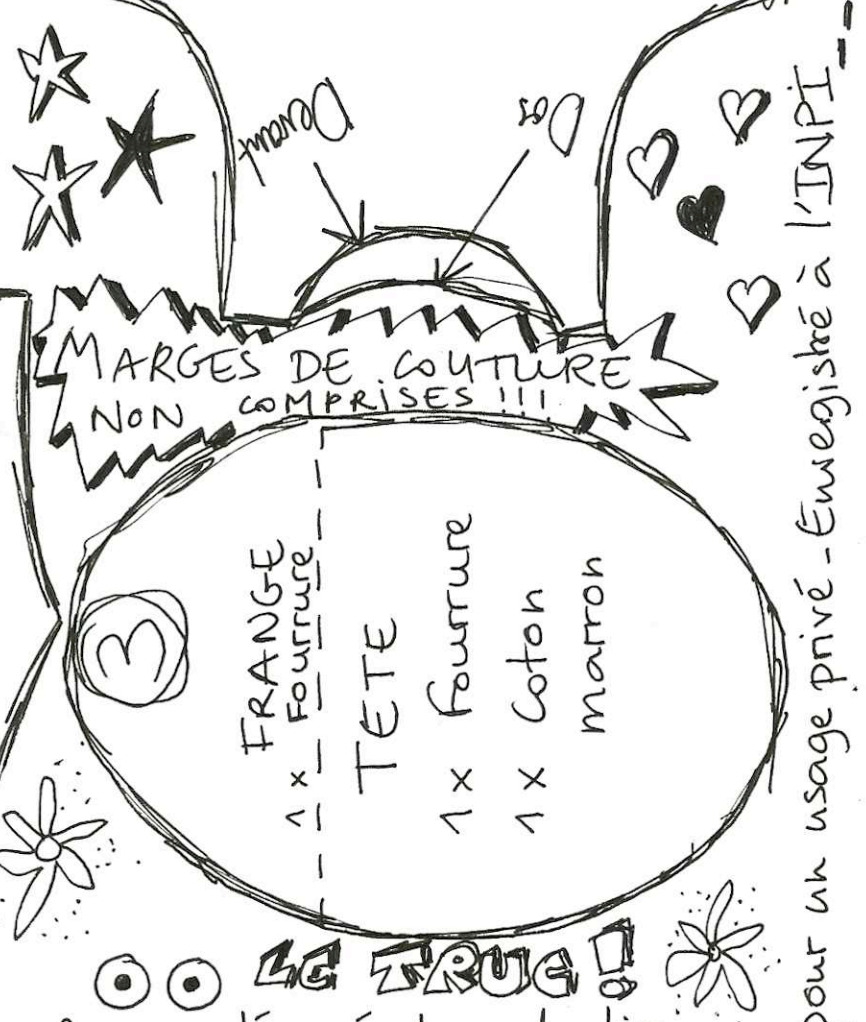 Devant
Dos
MARGES DE COUTURE
NON COMPRISES !!!
3
FRANGE
1 x Fourrure
TETE
1 x Fourrure
1 x Coton
marron
LE TRUC !
pour un usage privé - Enregistré à l'INPI